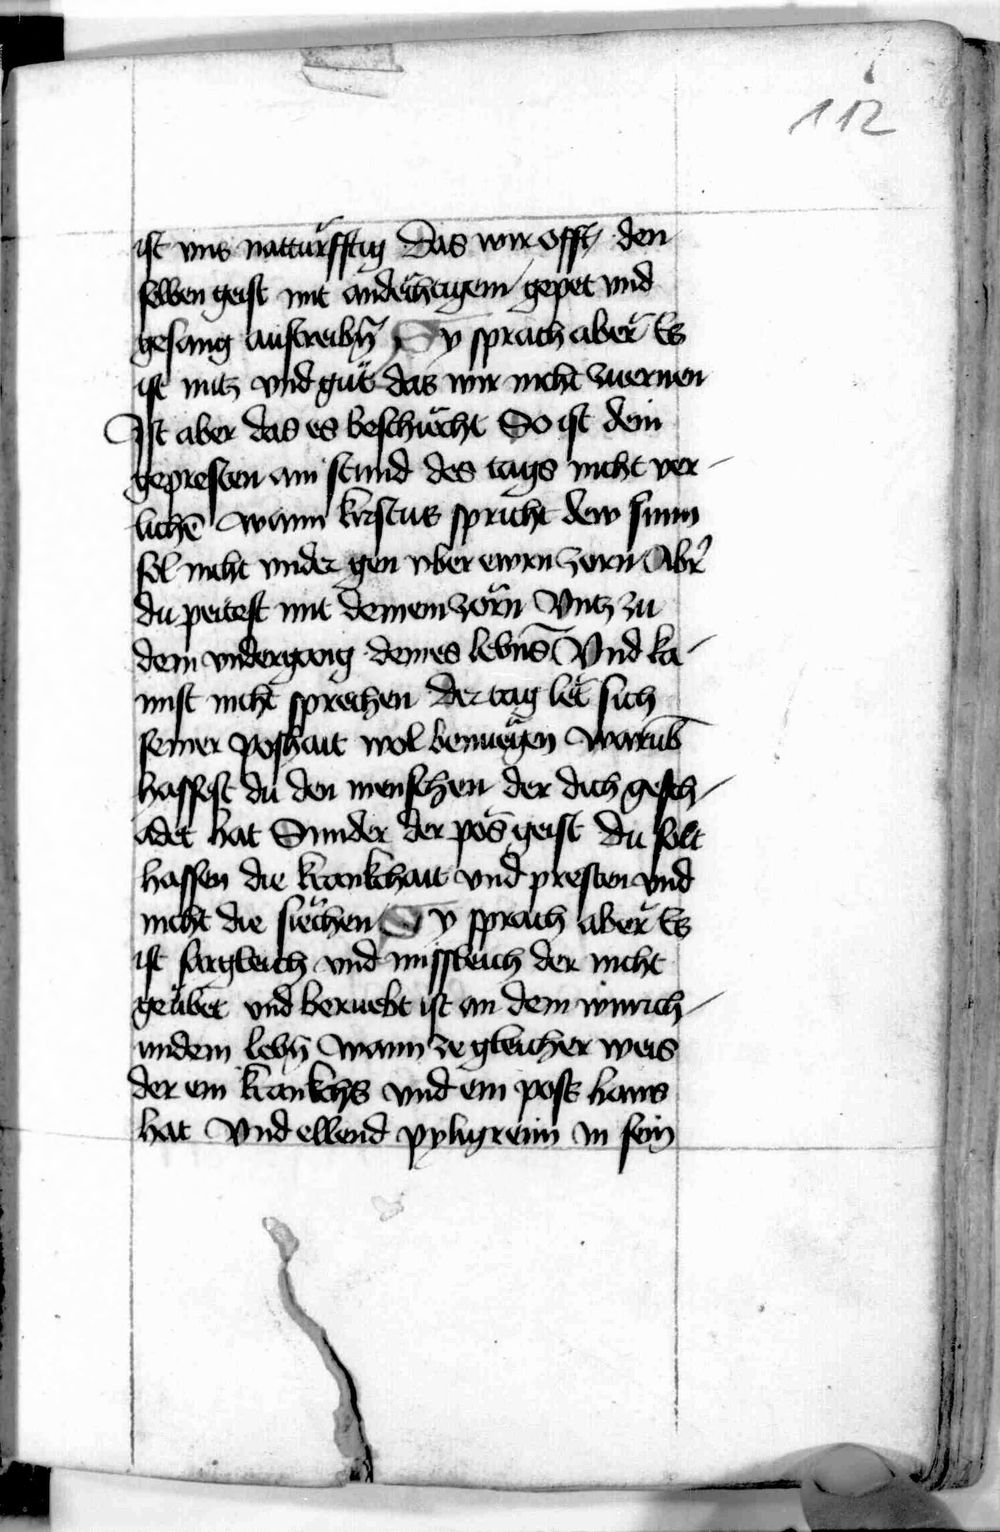 112
ist vns natturfftig Das wir offt den
selben geist mit andëchtigem gepet vnd
gesang austreibn̄ Sy sprach aber Es
ist nütz vnd gut das wir nicht zuernen
Ist aber das es beschiecht So ist dem
gepresten ain stund des tags nicht ver-
lichē wann kristus spricht dew sunn
sol nicht vnder gen vber ewrn zorn Abr̄
du peitest mit deinem zorn Vntz zu
dem vndergang deines lebn̄s Vnd ka-
nnst nicht sprechen der tag let sich
seiner poshait wol benuegen warūb
hassest du den menschen der dich gesch-
adet hat Sunder der pos geist Du solt
hassen die krankchait vnd presten vnd
nicht die siechen Sy sprach aber Es
ist sorgleich vnd missleich der nicht
geübet vnd beruebt ist an dem
lebn̄ wann ze gleicher weis
der ein krankchs vnd ein poses haws
hat Vnd ellend pylugreim in sein